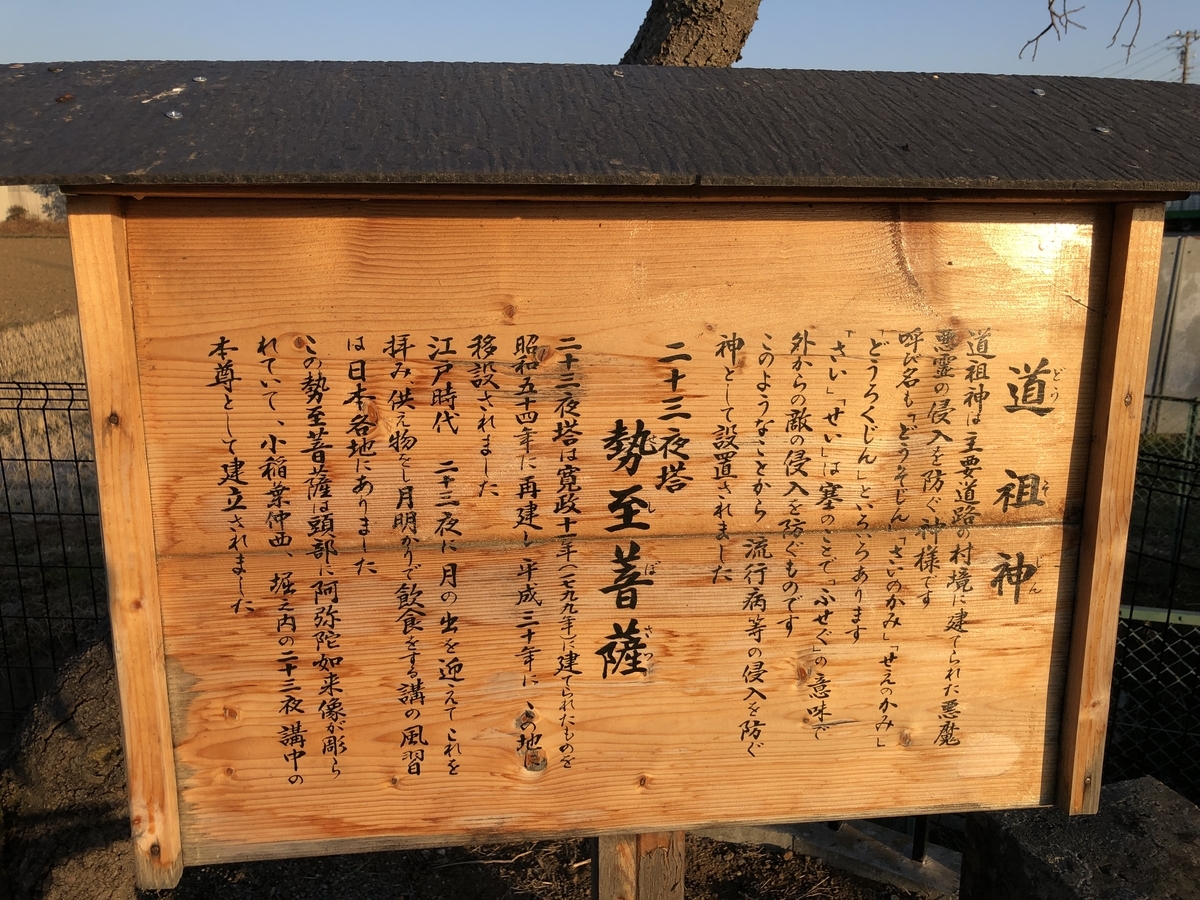 道祖神
どうそじん
道祖神は主要道路の村境に建てられた悪魔
悪霊の侵入を防ぐ神様です
呼び名も「どうそじん」「さいのかみ」「せえのかみ」
「どうろくじん」といろいろあります
「さい」「せい」は塞のことで「ふせぐ」の意味で
外からの敵の侵入を防ぐものです
このようなことから 流行病等の侵入を防ぐ
神として設置されました
二十三夜塔
勢至菩薩
せしぼさつ
二十三夜塔は寛政十一年(一七九九年)に建てられたものを
昭和五十四年に再建し 平成三十年に この地に
移設されました
江戸時代 二十三夜に月の出を迎えてこれを
拝み、供え物をし月明かりで飲食をする講の風習
は日本各地にありました
この勢至菩薩は頭部に阿弥陀如来像が彫ら
れていて、小稲葉仲西、堀之内の二十三夜講中の
本尊として建立されました